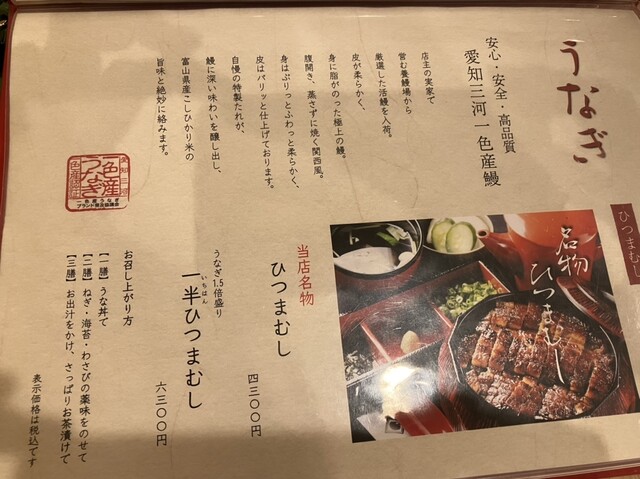 うなぎ
安心・安全・高品質
愛知三河一色産鰻
店主の実家で
営む養鰻場から
厳選した活鰻を入荷。
皮が柔らかく、
身に脂がのった極上の鰻。
腹開き、蒸さずに焼く関西風。
身はぷりっとふわっと柔らかく、
皮はパリッと仕上げております。
自慢の特製たれが、
鰻に深い味わいを醸し出し、
富山県産こしひかり米の
旨味と絶妙に絡みます。
一色産
うなぎ
一色産うなぎ
ブランド普及協議会
ひつまむし
名物
ひつまむし
当店名物
ひつまむし
四三〇〇円
うなぎ1.5倍盛り
いちはん
一半ひつまむし
六三〇〇円
お召し上がり方
【一膳】うな丼で
【二膳】ねぎ・海苔・わさびの薬味をのせて
【三膳】お出汁をかけ、さっぱりお茶漬けで
表示価格は税込です